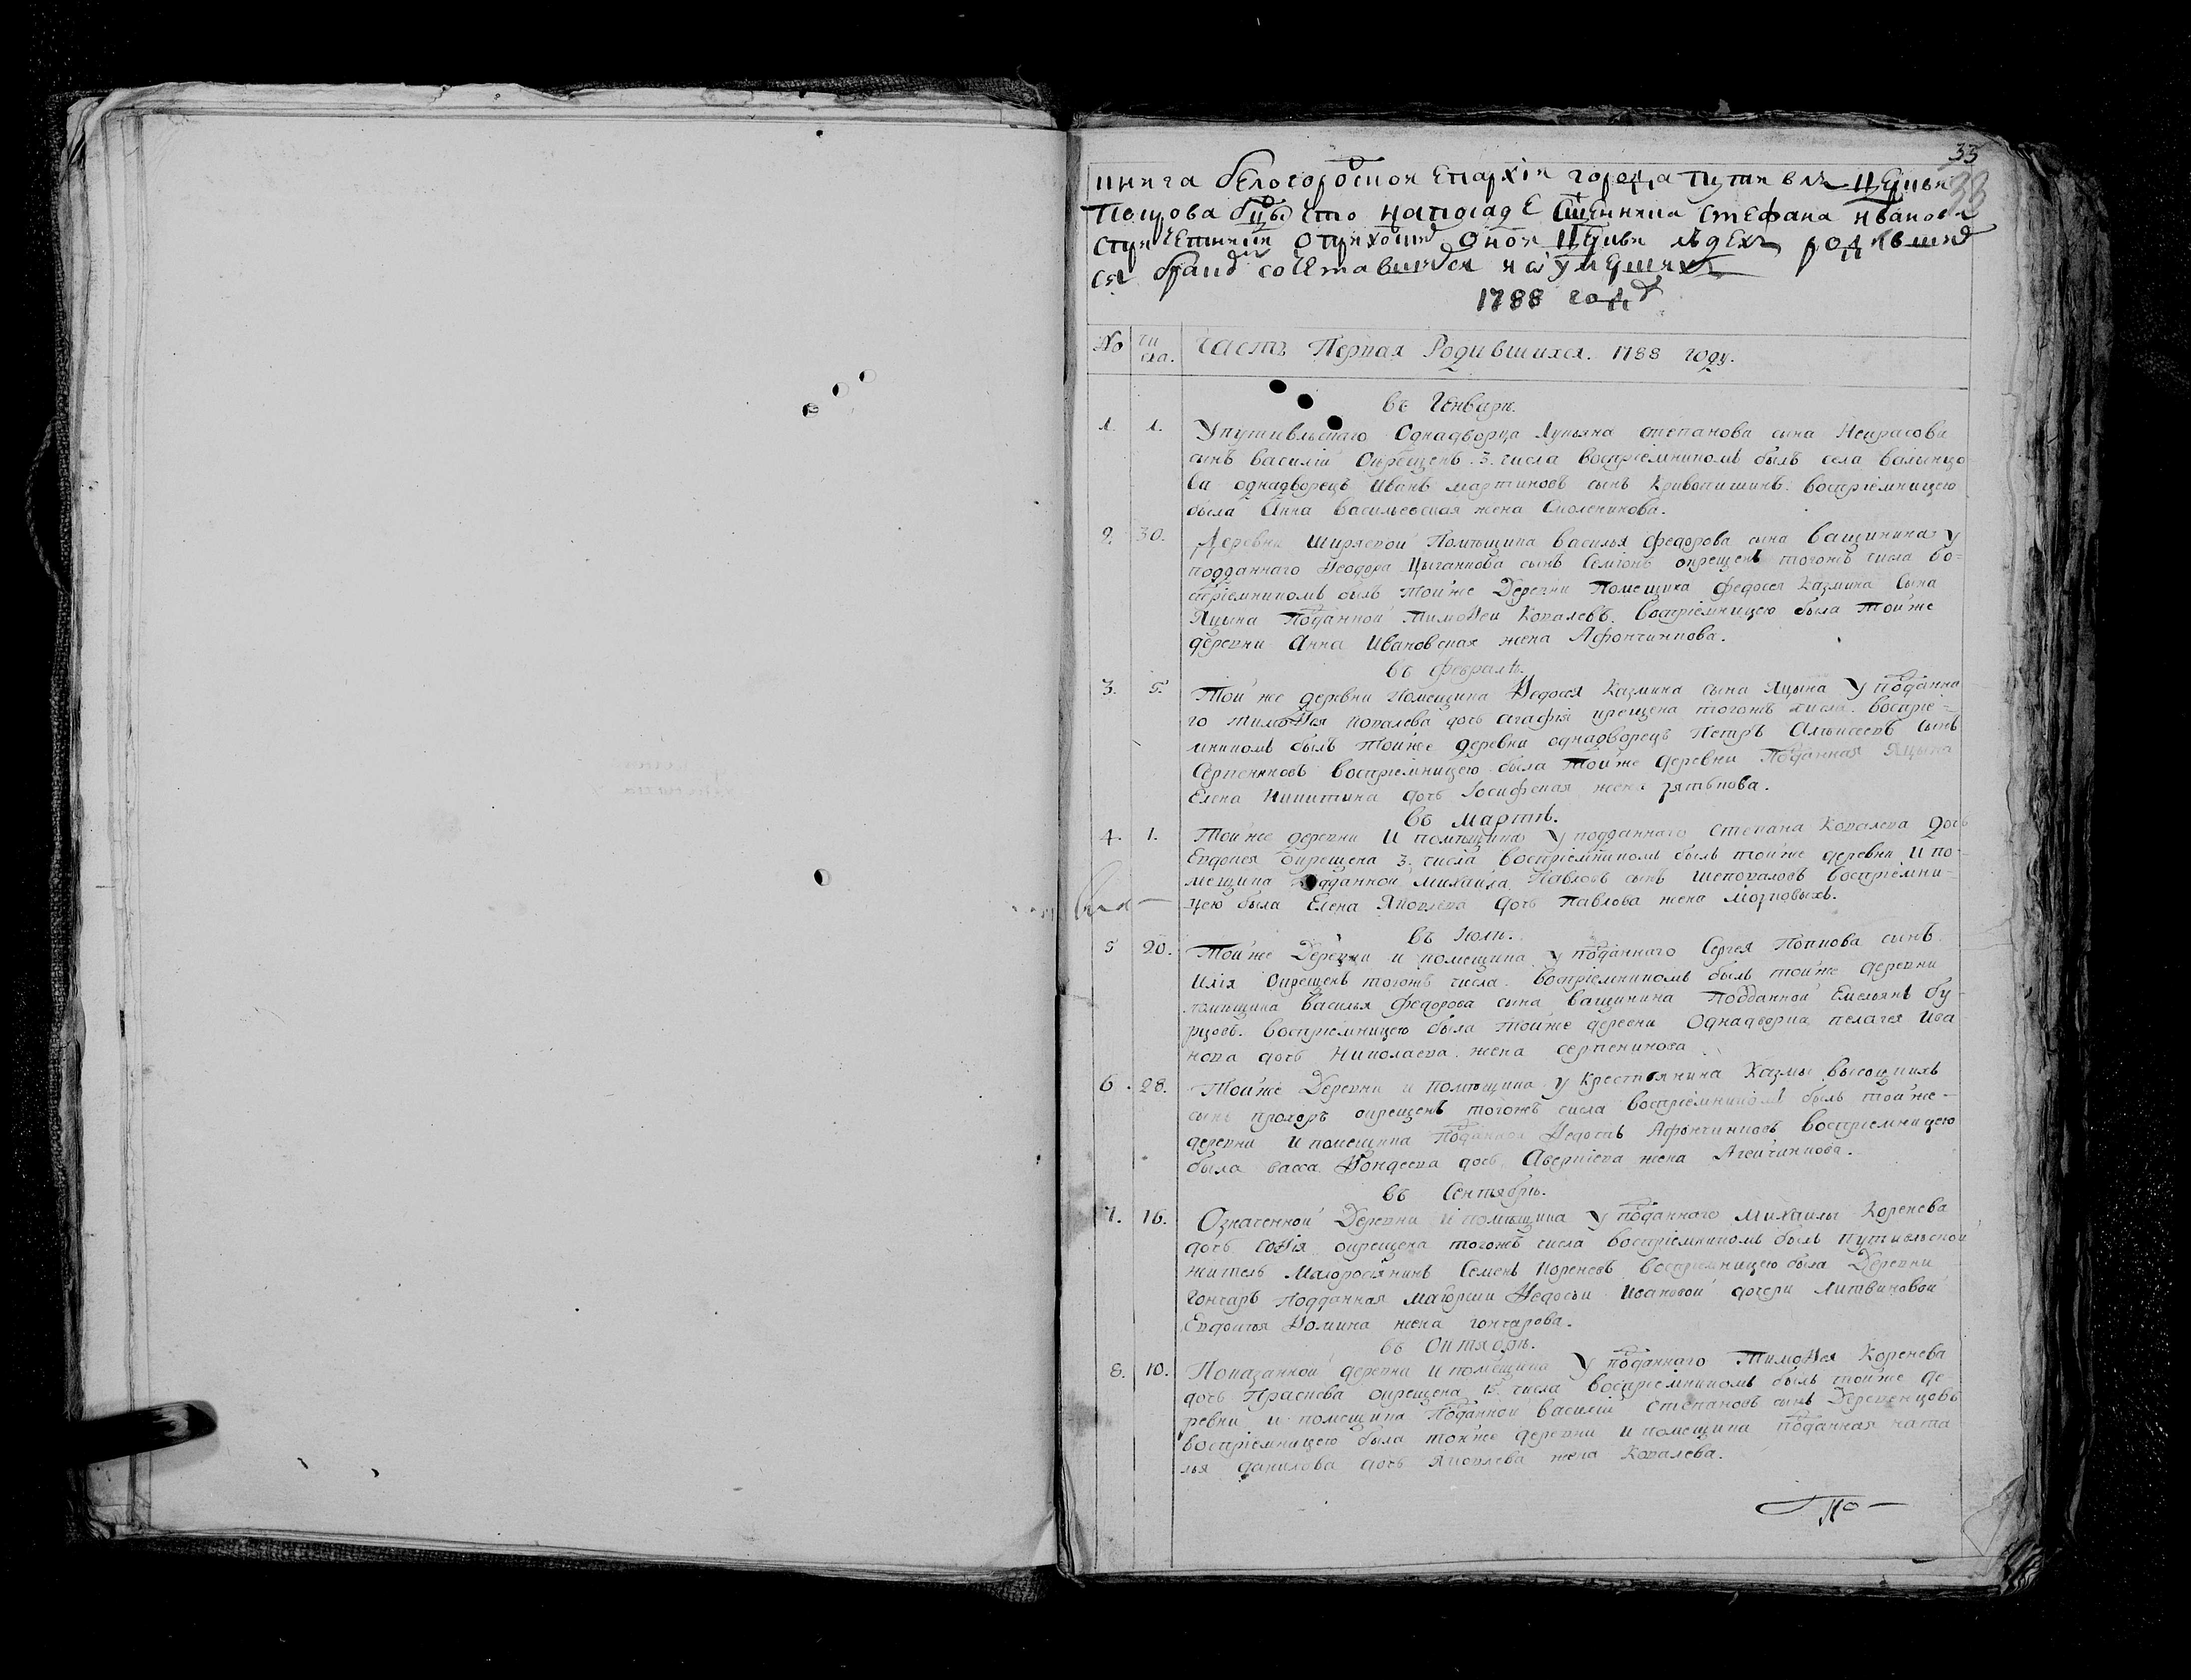 33
33
книга белогородскои епархiи города путивля церкви
Покрова бцы что напосаде сщенника стефана иванова
спричетники оприходе онои церкви людехъ родившихъ
ся бракомъ сочетавшихся и оумершихъ
1788 годъ
№ чи
сла. Часть Первая Родившихся. 1788 году.
въ Генваръ.
1. 1. Упутивльскаго Однадворца Лукьяна степанова сына Некрасова
сынъ василій окрещенъ 3. числа воспріемникомъ былъ села валынцо-
ва однадворецъ Иванъ мартиновъ сынъ Кривопишинъ. воспріемницею
была Анна васильевская жена Смоленикова.
2. 30. Деревни Ширяевой Помѣщика василья федорова сына ващинина у
подданнаго Ѳеодора Цыганкова сынъ Семіонъ окрещенъ тогожъ числа во=
спріемникомъ былъ тойже Деревни Помещика федосея Казмина сына
Яцына Поданной Тимоѳей Ковалевъ. воспріемницею была тойже
деревни Анна Ивановская жена Афончинкова.
въ февралѣ.
3. 5. Той же деревни Помещика Ѳедосея Казмина сына Яцына у поданна
го тимоѳея ковалева дочь агафія крещена тогожъ числа. воспріе=
мникомъ былъ тойже деревни однадворецъ Петръ Алѣксеевъ сынъ
Серпениновъ воспріемницею была тойже деревни Поданная Яцына
Елена Никитина дочь Іосифская жена зятькова.
въ мартѣ.
4. 1. Тойже деревни И помѣщика у подданнаго степана Ковалева дочь
Евдокея окрещена 3. числа воспріемникомъ былъ тойже деревни И по-
мещика подданной михайла Павловъ сынъ Шеповаловъ воспріемни-
цею была Елена Яковлева дочь Павлова жена мозговыхъ.
въ Іюли.
5 20. Тойже Деревни и помещика у поданнаго Сергея Попкова сынъ
Илія окрещенъ тогожъ числа. воспріемникомъ былъ тойже деревни
помѣщика василья федорова сына ващинина Подданной Емельянъ бу-
рцовъ. воспріемницею была тойже деревни Однадворка пелагея Ива
нова дочь Николаева жена серпенинова
6. 28. Тойже Деревни и помѣщика у Крестьянина Казмы высоцкихъ
сынъ прохоръ окрещенъ тогожъ числа воспріемникомъ былъ тойже-
деревни И помещика Поданной Ѳедотъ Афончинковъ воспріемницею
была васса Ѳандеева дочь Аверкіева жена Агейчинкова.
въ Сентябрѣ.
7. 16. Означенной Деревни и помѣщика у поданнаго михайлы Коренева
дочь Софія окрещена тогожъ числа воспріемникомъ былъ путивльской
житель Малоросіянинъ Семенъ Кореневъ воспріемницею была Деревни
Гончаръ Подданная маіорши Ѳедосьи Ивановой дочери Литвиновой
Евдокѣя Ѳомина жена гончарова.
въ Октябрѣ.
8. 10. Показанной деревни И помещика у поданнаго Тимоѳея Коренева
дочь Прасковa окрещена 15. числа воспріемникомъ былъ тойже де-
ревни и помещика Поданной василій степановъ сынъ Деревенцовъ
воспріемницею была тойже деревни и помещика поданная ната
лья данилова дочь Яковлева жена Ковалева.